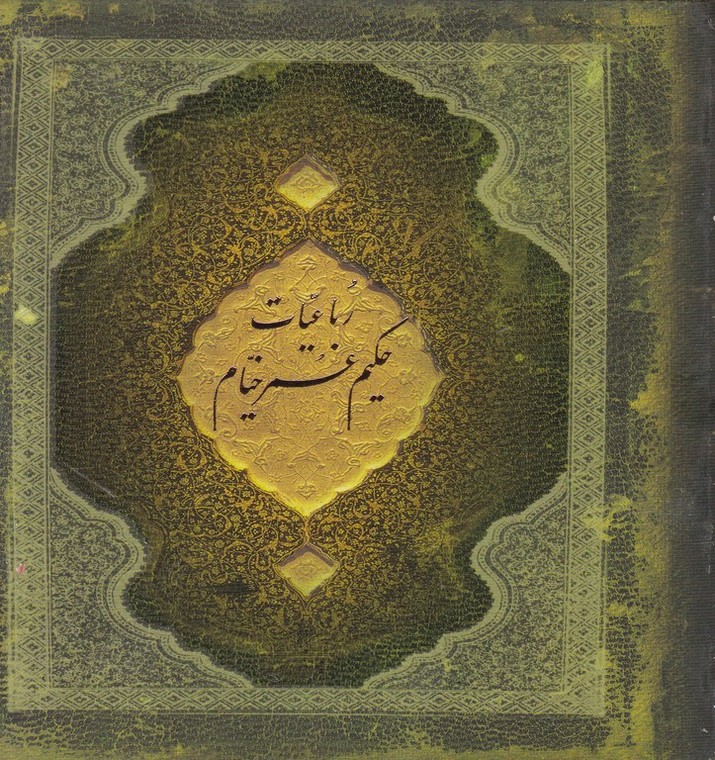 رُباعیّات
حکیم عُمر خیّام